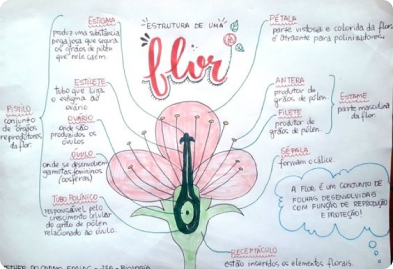 ESTRUTURA DE UMA
flor
ESTIGMA
produz uma substância
pegajosa que segura
os grãos de pólen
que nele caem.
ESTILETE
tubo que liga
o estigma ao
ovário
OVÁRIO
onde são
produzidos os
óvulos
ÓVULO
onde se desenvolvem
gametas femininos
(oosferas)
TUBO POLÍNICO
responsável pelo
crescimento celular
do grão de pólen
relacionado ao óvulo.
PISTILO
conjunto
de órgãos
reprodutores
da flor.
PÉTALA
parte vistosa e colorida da flor
é atraente para polinizadores.
ANTERA
produtor de
grãos de pólen
FILETE
produtor de
grãos de pólen
ESTAME
parte masculina
da flor.
SÉPALA
formam o cálice.
A FLOR É UM CONJUNTO DE
FOLHAS DESENVOLVIDAS
COM FUNÇÃO DE REPRODUÇÃO
E PROTEÇÃO!
RECEPTÁCULO
estão inseridos os elementos florais.
Biologia